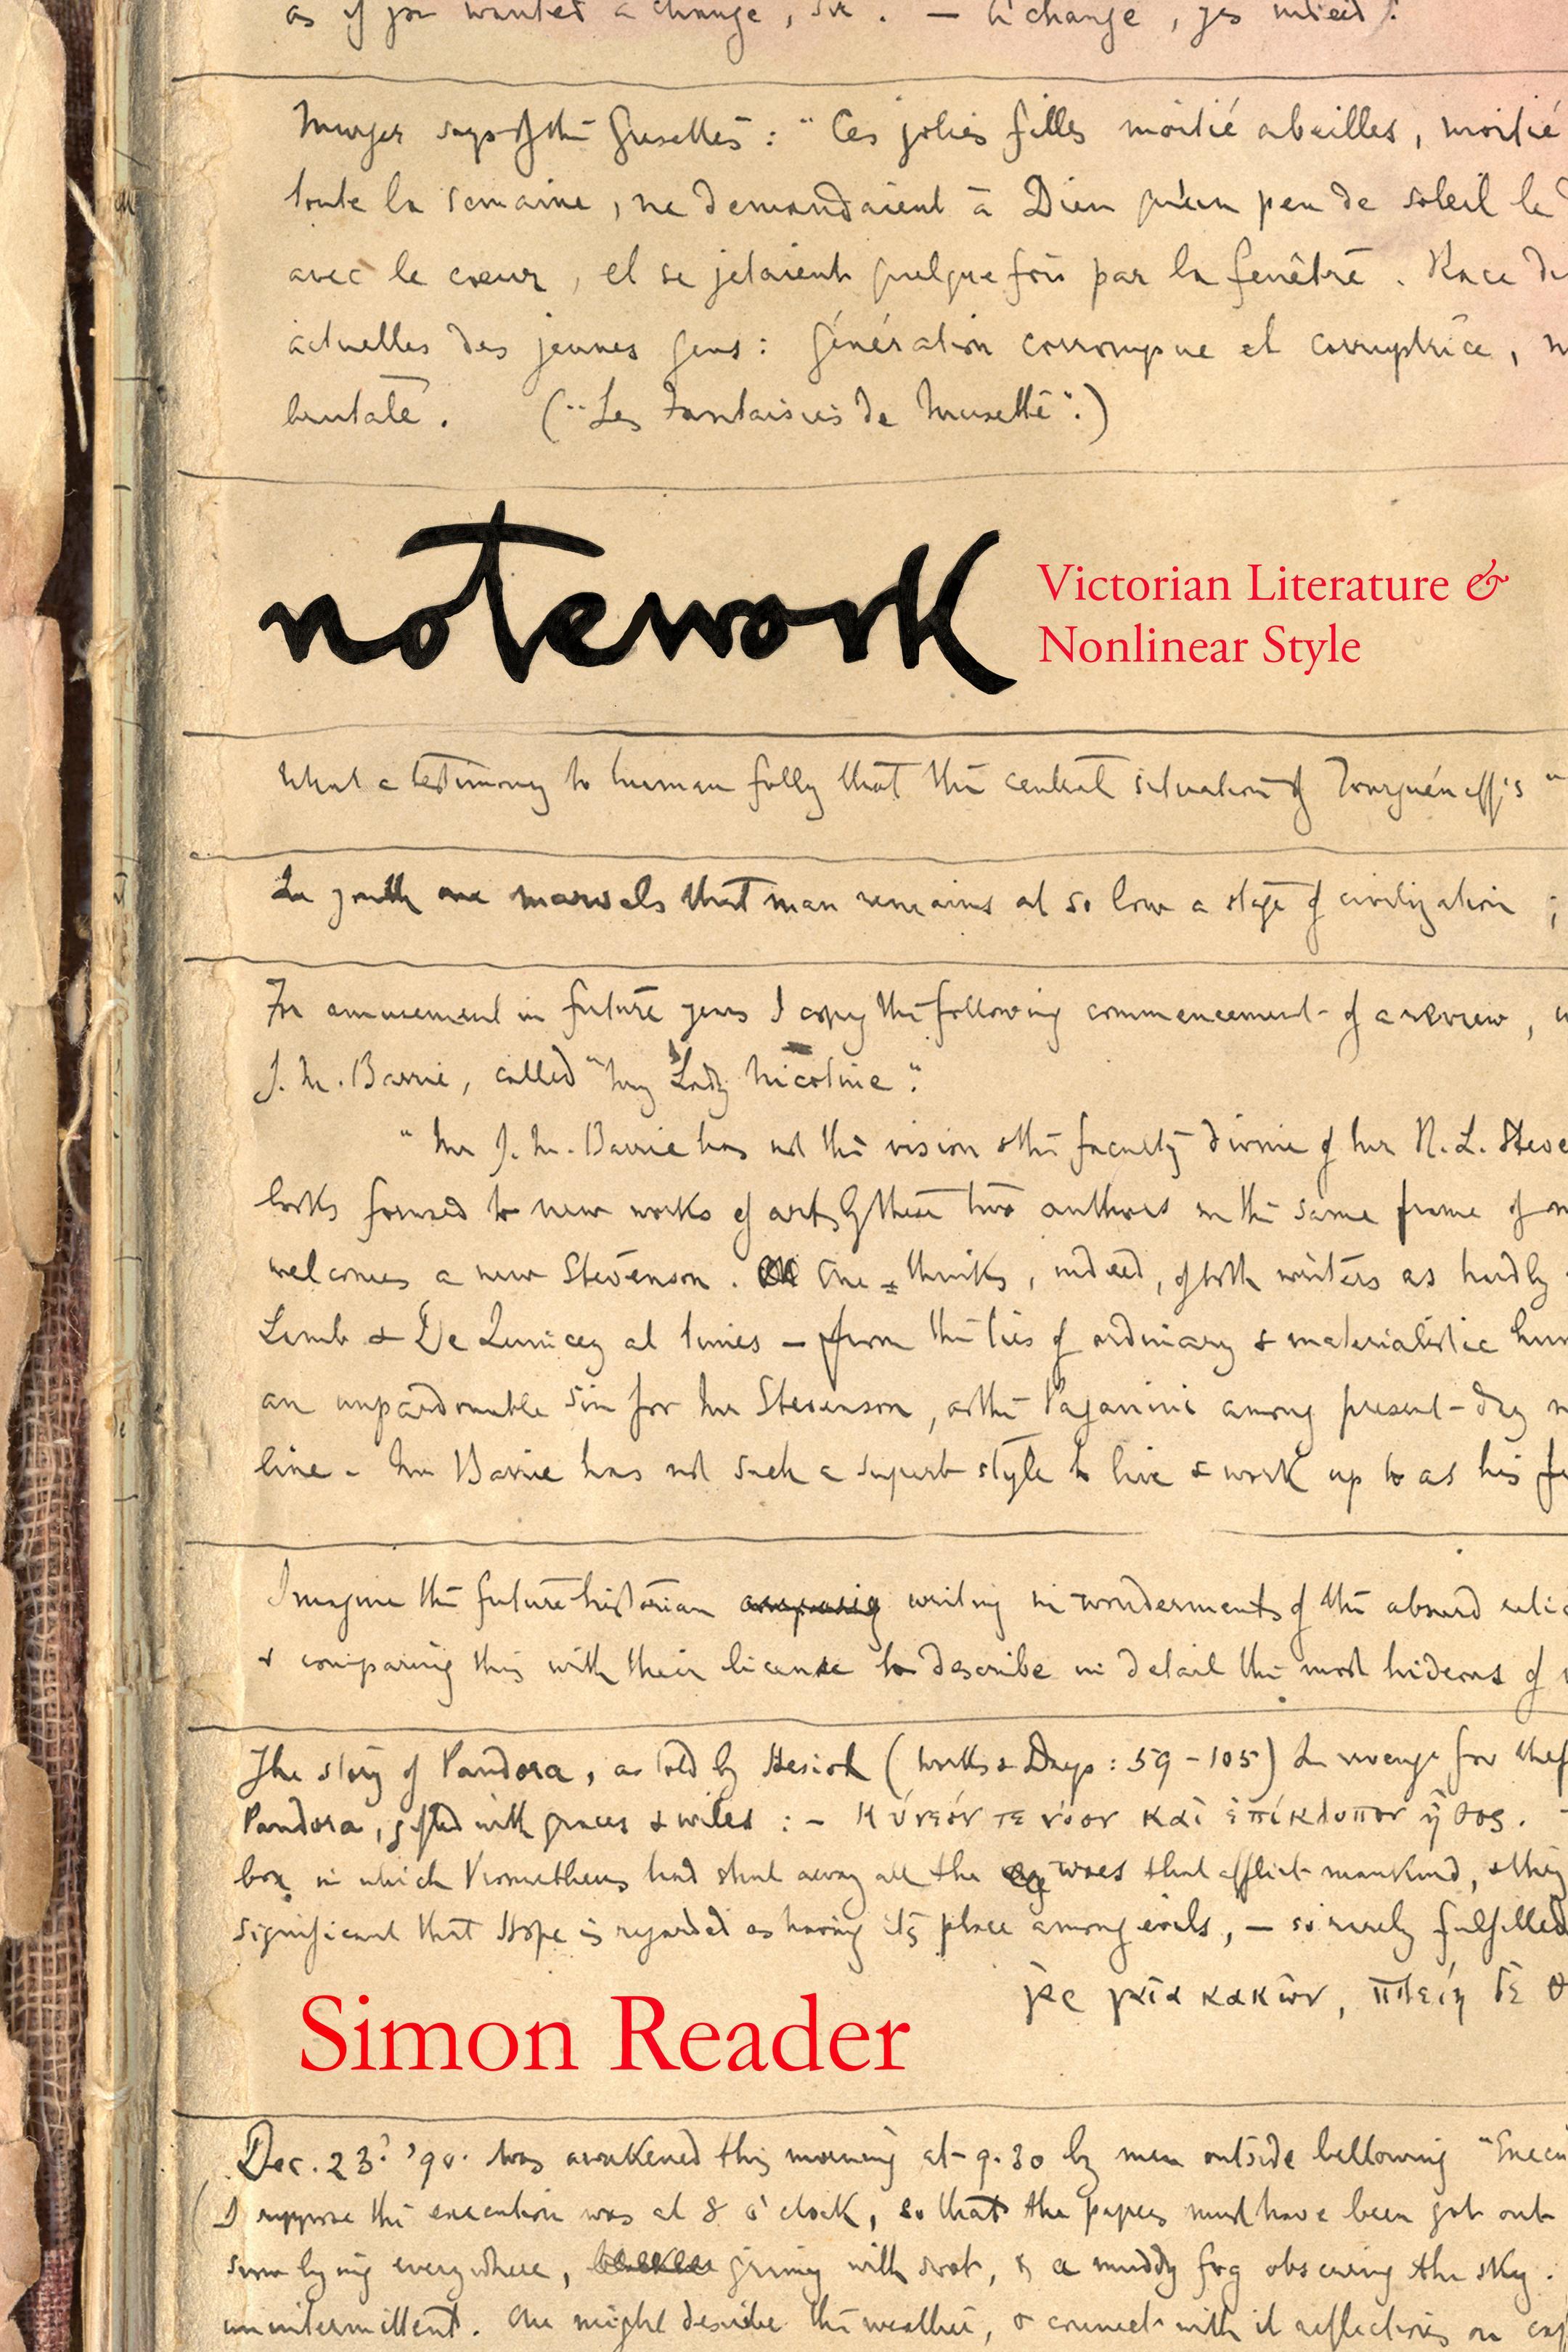 as if you wanted a change, sir. — A change, yes indeed!
Murger says of the Grisettes: "Ces jolies filles moitié abeilles, moitié
toute la semaine, ne demandaient à Dieu qu'un peu de soleil le
avec le cœur, et se jetaient quelquefois par la fenêtre. Race
actuelles des jeunes gens: génération corrompue et corruptrice,
brutale. ("Les Fantaisies de Musette".)
notework
Victorian Literature &
Nonlinear Style
What a testimony to human folly that the central situation of Tourguéneff's "
In youth one marvels that man remains at so low a stage of civilization ;
For amusement in future years I copy the following commencement of a review,
J. M. Barrie, called "My Lady Nicotine".
"Mr J. M. Barrie has not the vision & the faculty divine of Mr R. L. Steve
looks forward to new works of art by these two authors in the same frame of
welcomes a new Stevenson. One thinks, indeed, of both writers as hardly
Lamb & De Quincey at times — from the ties of ordinary & materialistic
an unpardonable sin for Mr Stevenson, as the Paganini among present-day
line. Mr Barrie has not such a superb style to live & work up to as his
Imagine the future historian writing in wonderment of the absurd
& comparing this with their license to describe in detail the most hideous of
The story of Pandora, as told by Hesiod (Works & Days: 59-105) In revenge for
Pandora, gifted with graces & wiles : — κύνεόν τε νόον καὶ ἐπίκλοπον ἦθος.
box in which Prometheus had shut away all the woes that afflict mankind, & they
significant that Hope is regarded as having its place among evils, — so rarely fulfilled
κακῶν, πλείη δὲ
Simon Reader
Dec. 23. '90. Was awakened this morning at 9.30 by men outside bellowing
(I suppose the execution was at 8 o'clock, so that the papers must have been got out
snow lying everywhere, grimy with soot, & a muddy fog obscuring the sky.
unintermittent. One might describe the weather, & connect with it reflections on